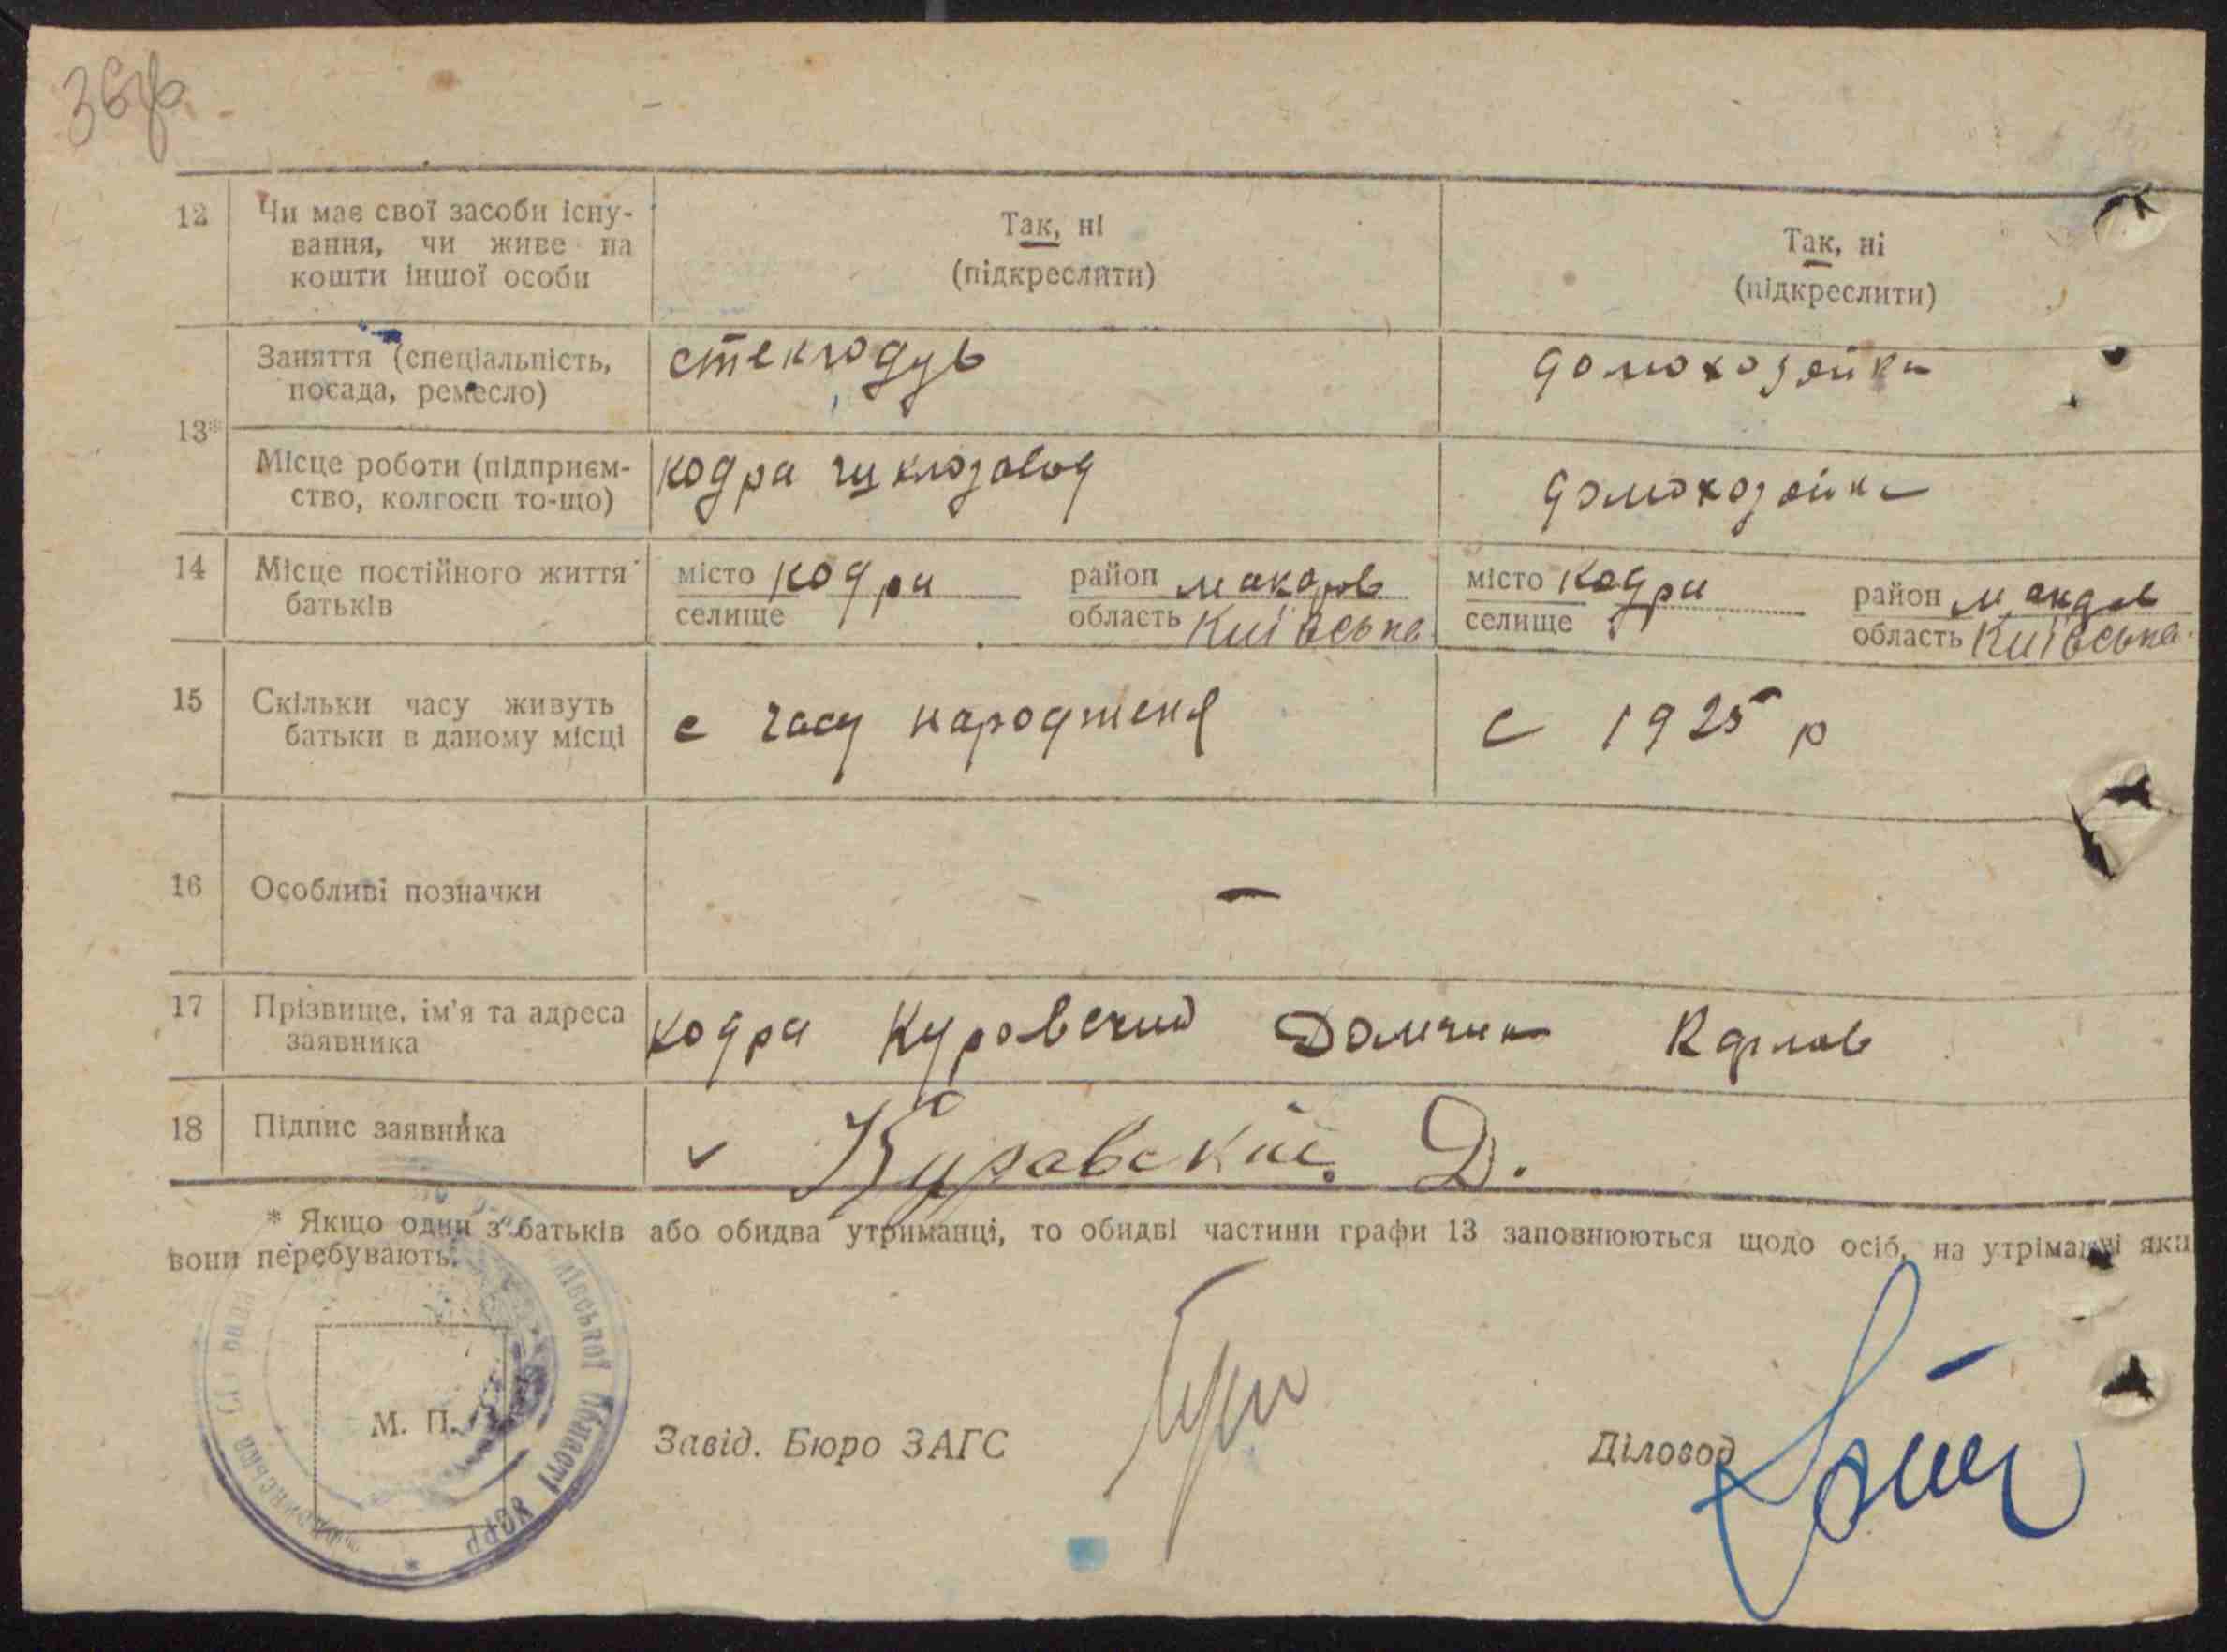 36зв
12 Чи має свої засоби існу- Так, ні Так, ні
вання, чи живе на
кошти іншої особи (підкреслити) (підкреслити)
Заняття (спеціальність, стеклодув домохозяйка
посада, ремесло)
13*
Місце роботи (підприєм- кодра домохозяйка
ство, колгосп то-що)
14 Місце постійного життя місто кодра район макаров місто кодра район макаров
батьків селище область Київська селище область Київська
15 Скільки часу живуть с часу народженя с 1925 р
батьки в даному місці
16 Особливі позначки –
17 Прізвище, ім'я та адреса кодра Куровский
заявника
18 Підпис заявника v Куравский. Д.
* Якщо один з батьків або обидва утриманці, то обидві частини графи 13 заповнюються щодо осіб, на утріманні яки
вони перебувають.
М. П.
Київської Області УСРР
Завід. Бюро ЗАГС Діловод